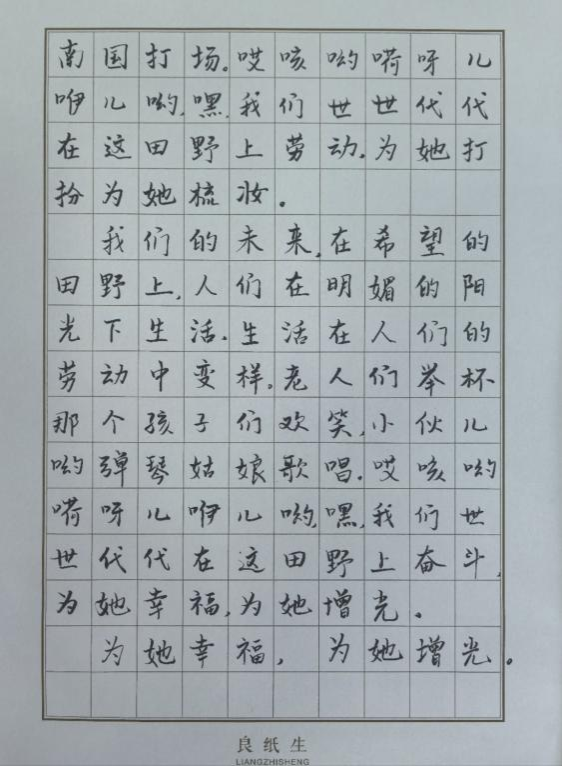 南国打场。哎咳哟嗬呀儿
咿儿哟,嘿,我们世世代代
在这田野上劳动,为她打
扮为她梳妆。
我们的未来,在希望的
田野上,人们在明媚的阳
光下生活.生活在人们的
劳动中变样,老人们举杯
那个孩子们欢笑,小伙儿
哟弹琴姑娘歌唱.哎咳哟
嗬呀儿咿儿哟,嘿,我们世
世代代在这田野上奋斗,
为她幸福,为她增光。
为她幸福,为她增光。
良纸生
LIANGZHISHENG